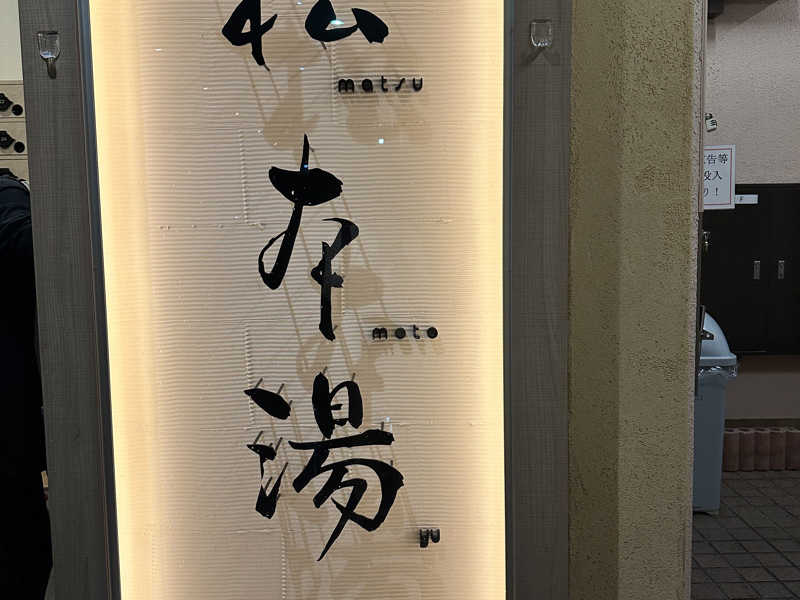 松
matsu
本
moto
湯
yu
告等
投入
り！